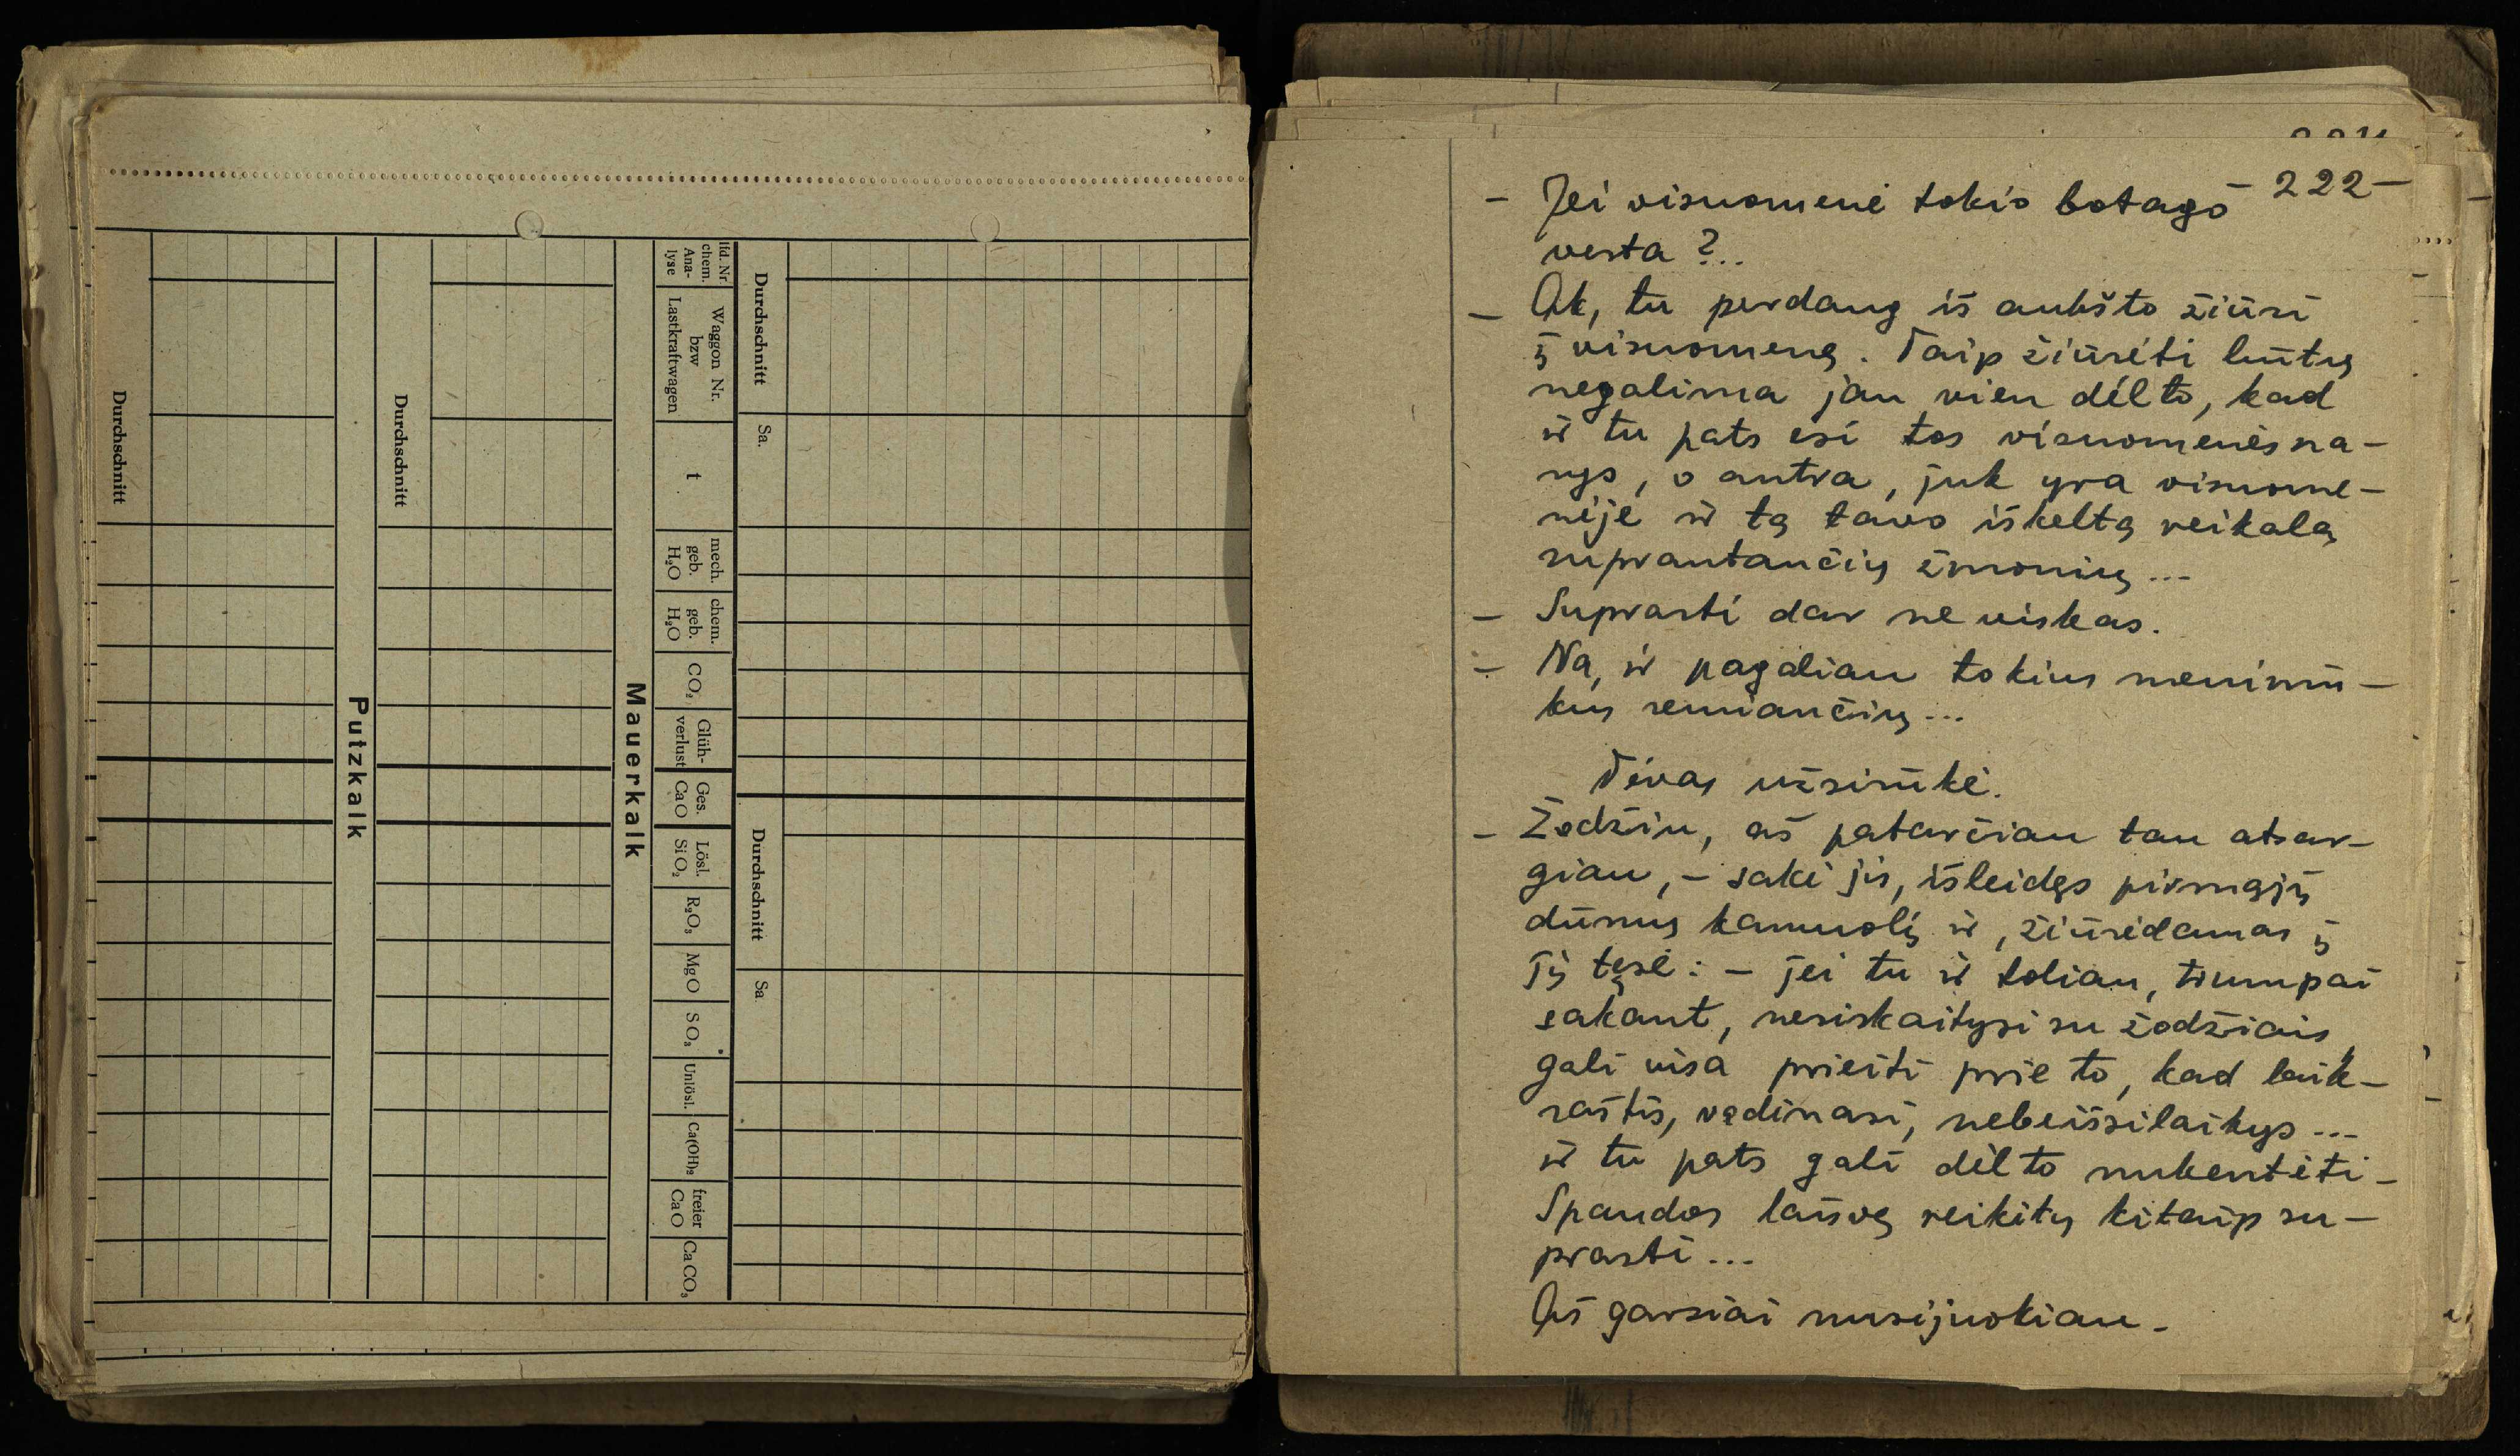 Durchschnitt
Sa.
Durchschnitt
Sa
lfd. Nr.
chem.
Ana-
lyse
Waggon Nr.
bzw
Lastkraftwagen
t
mech.
geb.
H₂O
chem.
geb.
H₂O
CO₂
Glüh-
verlust
Ges.
CaO
Lösl.
SiO₂
R₂O₃
MgO
SO₃
Unlösl.
Ca(OH)₂
freier
CaO
CaCO₃
Mauerkalk
Durchschnitt
Putzkalk
Durchschnitt
- 222 -
- Jei visuomenė tokio botago
verta ?..
- Ak, tu perdaug iš aukšto žiūri
į visuomenę. Taip žiūrėti būtų
negalima jau vien dėlto, kad
ir tu pats esi tos visuomenės na-
rys, o antra, juk yra visuome-
nėje ir tą tavo iškeltą reikalą
suprantančių žmonių...
- Suprasti dar ne viskas.
- Na, ir pagaliau tokius meninin-
kus remiančių...
Tėvas užsirūkė.
- Žodžiu, aš patarčiau tau atsar-
giau, - sakė jis, išleidęs pirmąjį
dūmų kamuolį ir, žiūrėdamas į
jį tęsė: - jei tu ir toliau, trumpai
sakant, nesiskaitysi su žodžiais,
gali visa prieiti prie to, kad laik-
raštis, vadinasi, nebeišsilaikys...
ir tu pats gali dėlto nukentėti.
Spaudos laisvę reikėtų kitaip su-
prasti...
Aš garsiai nusijuokiau.